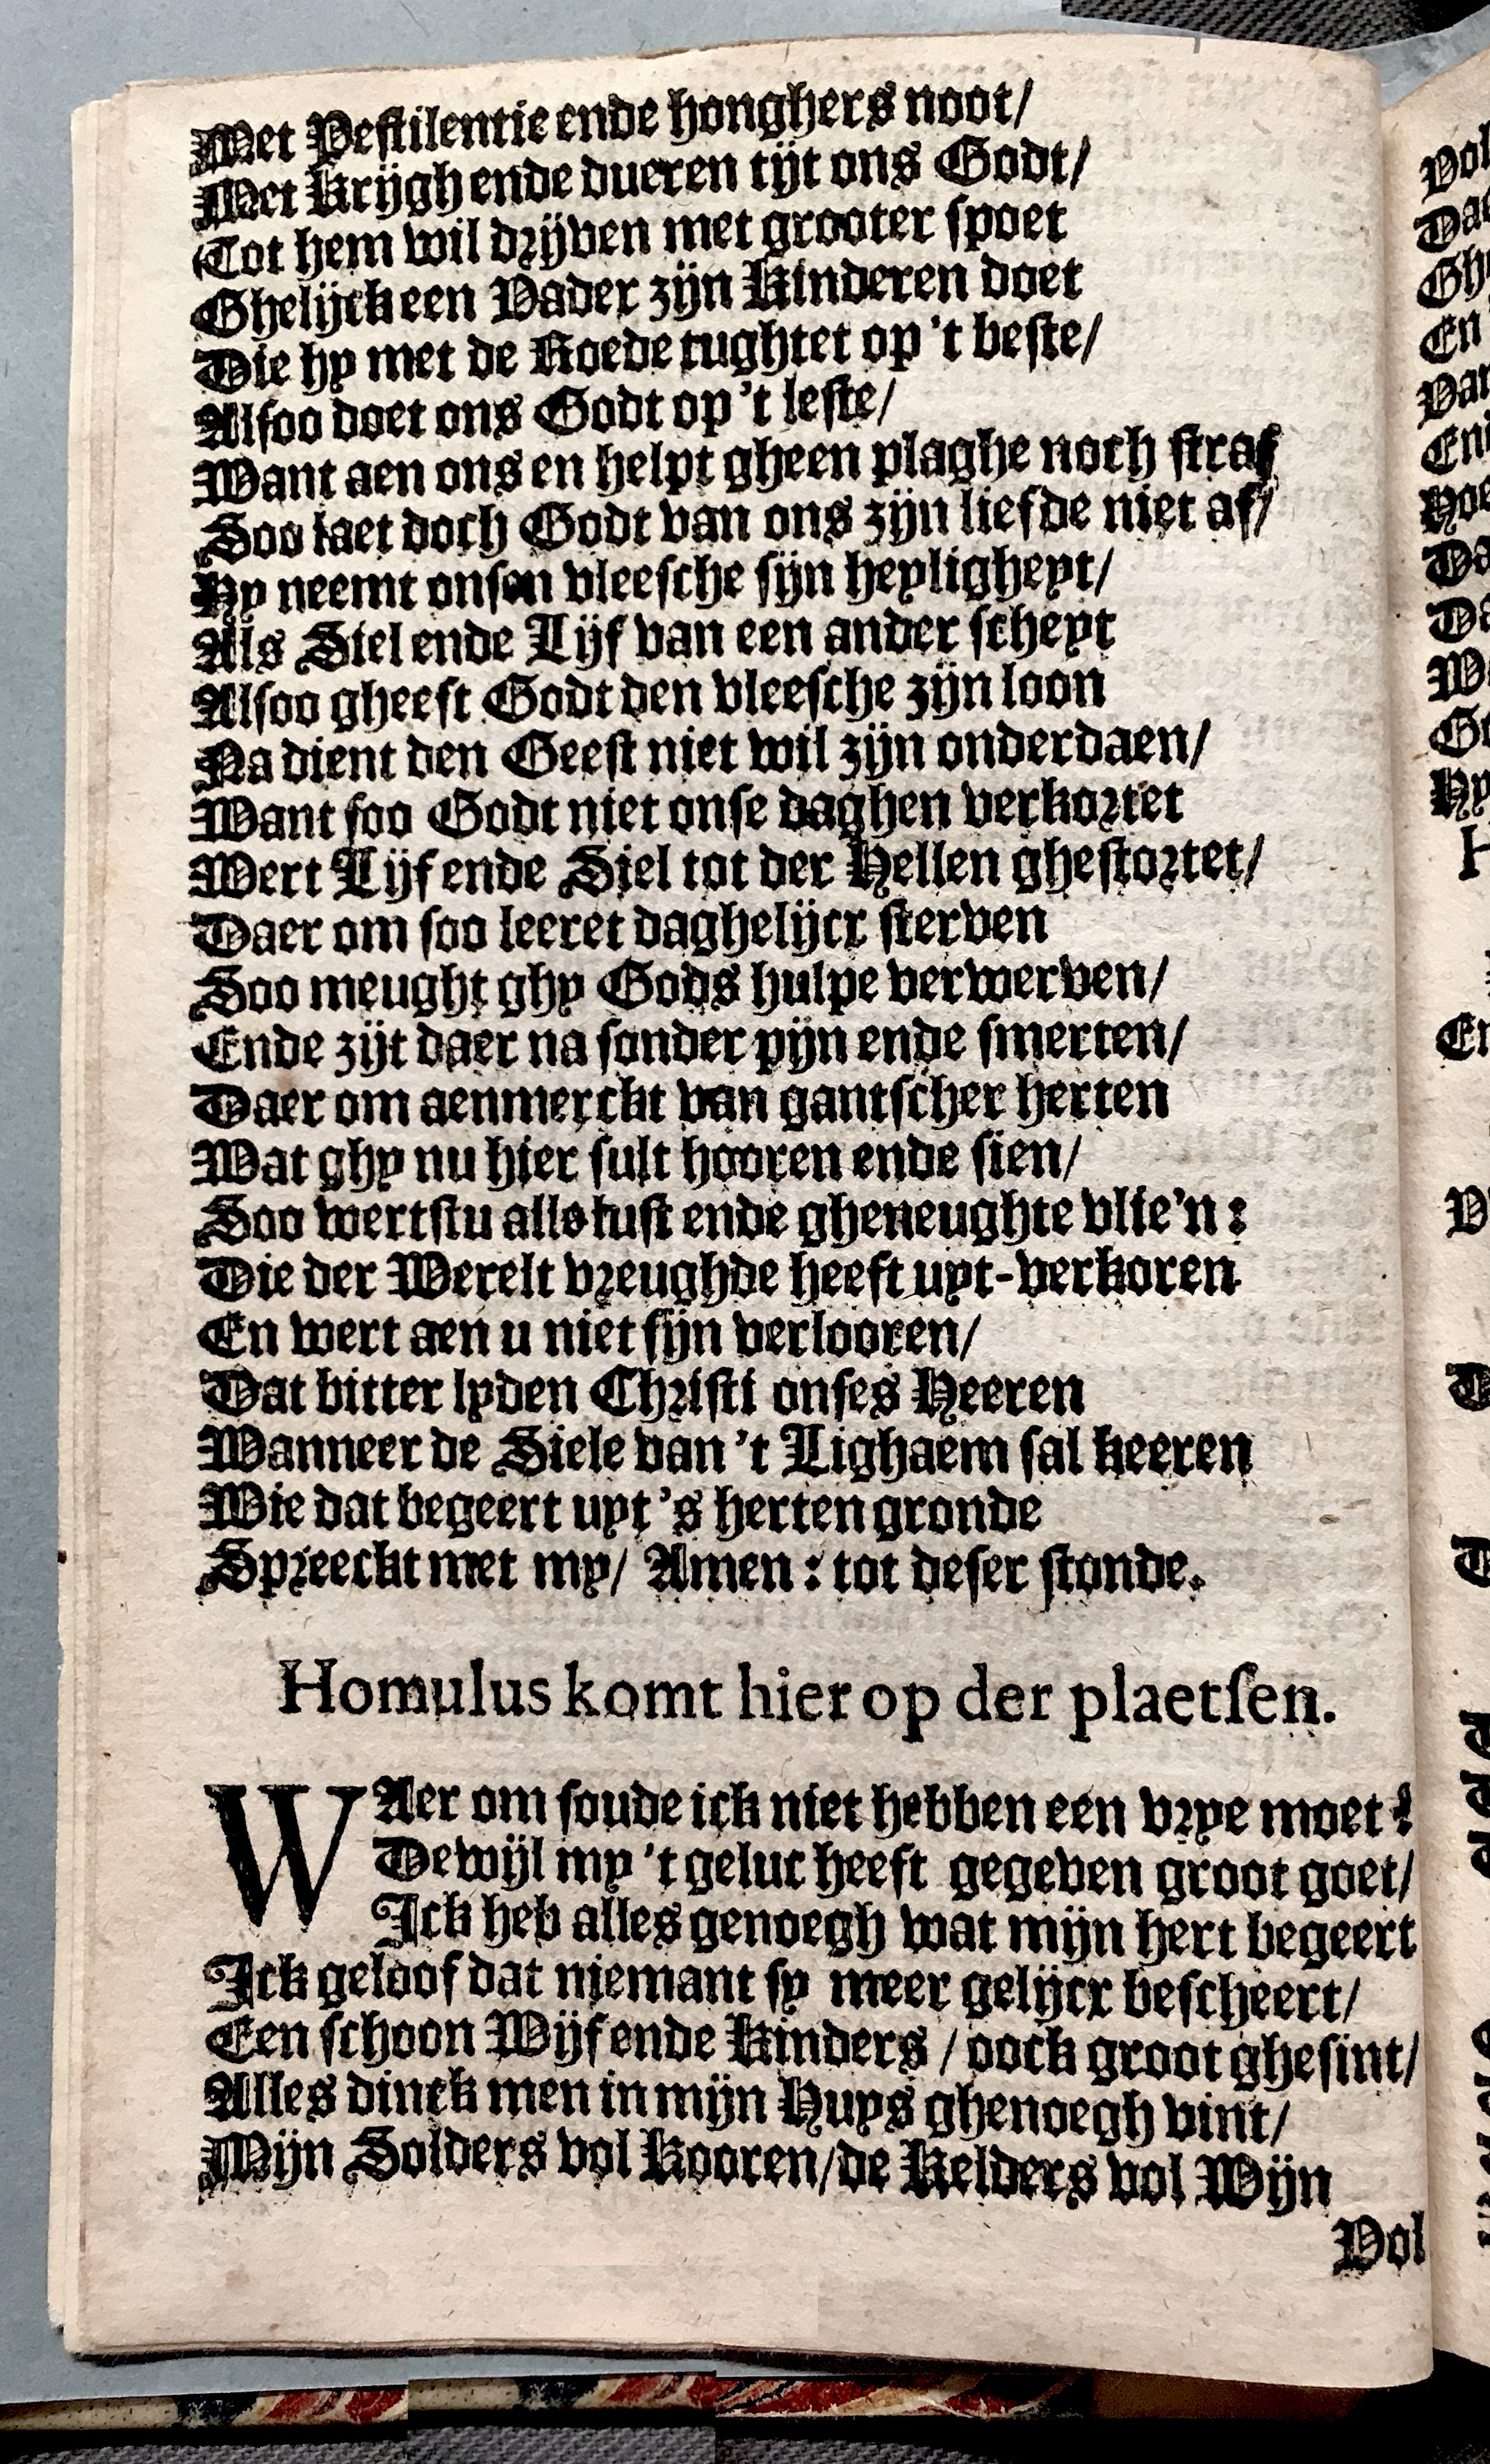 Met Pestilentie ende honghers noot/
Met Krijgh ende dueren tijt ons Godt/
Tot hem wil drijven met grooter spoet
Ghelijck een Vader zijn Kinderen doet
Die hy met de Roede tughtet op 't beste/
Alsoo doet ons Godt op 't leste/
Want aen ons en helpt gheen plaghe noch straf
Soo laet doch Godt van ons zijn liefde niet af/
Hy neemt onsen vleesche sijn heyligheyt/
Als Siel ende Lijf van een ander scheyt
Alsoo gheeft Godt den vleesche zijn loon
Na dient den Geest niet wil zijn onderdaen/
Want soo Godt niet onse daghen verkortet
Wert Lijf ende Siel tot der Hellen ghestortet/
Daer om soo leeret daghelijcx sterven
Soo meught ghy Gods hulpe verwerven/
Ende zijt daer na sonder pijn ende smerten/
Daer om aenmerckt van gantscher herten
Wat ghy nu hier sult hooren ende sien/
Soo wertstu alle lust ende gheneughte vlie'n:
Die der Werelt vreughde heeft uyt-verkoren
En wert aen u niet sijn verlooren/
Dat bitter lyden Christi onses Heeren
Wanneer de Siele van 't Lighaem sal keeren
Wie dat begeert uyt 's herten gronde
Spreeckt met my/ Amen: tot deser stonde.
Homulus komt hier op der plaetsen.
WAer om soude ick niet hebben een vrye moet?
Dewijl my 't geluc heeft gegeven groot goet/
Ick heb alles genoegh wat mijn hert begeert
Ick geloof dat niemant sy meer gelijcx bescheert/
Een schoon Wijf ende Kinders / oock groot ghesint/
Alles dinck men in mijn Huys ghenoegh vint/
Mijn Solders vol Kooren/de Kelders vol Wijn
Vol